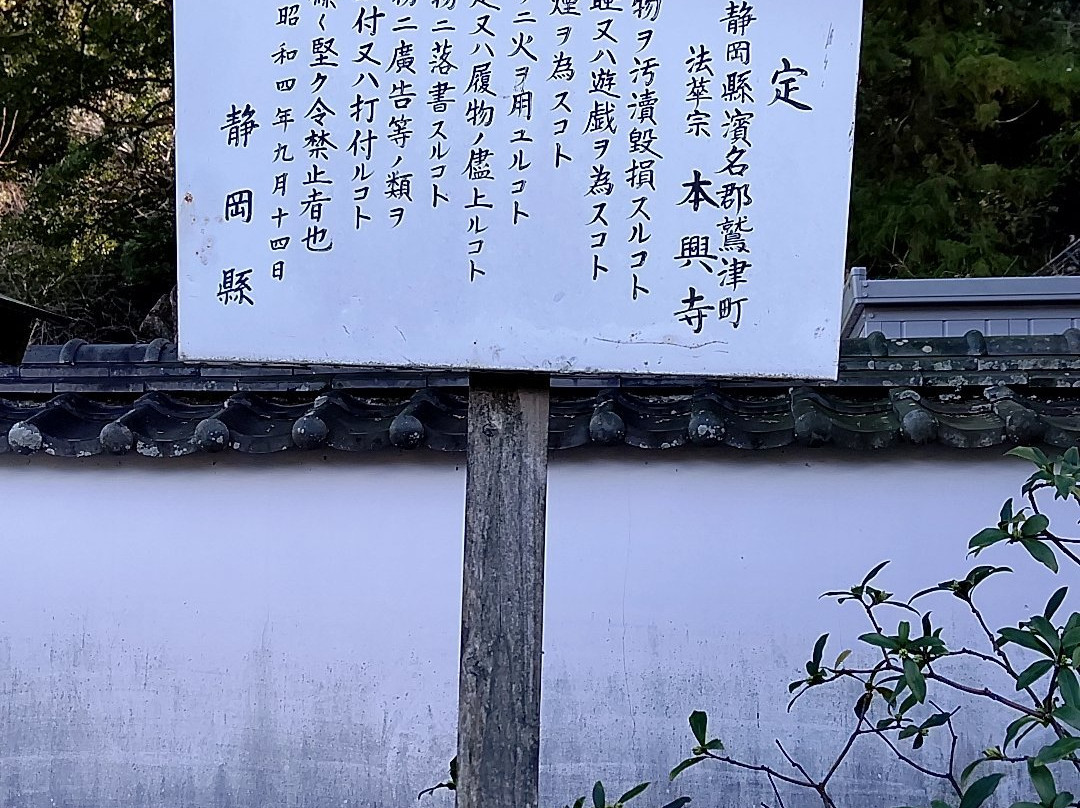 定
静岡縣濱名郡鷲津町
法華宗 本興寺
物ヲ汚瀆毀損スルコト
睡又ハ遊戯ヲ為スコト
煙ヲ為スコト
ニ火ヲ用ユルコト
又ハ履物ノ儘上ルコト
ニ落書スルコト
ニ廣告等ノ類ヲ
付又ハ打付ルコト
堅ク令禁止者也
昭和四年九月十四日
静岡縣